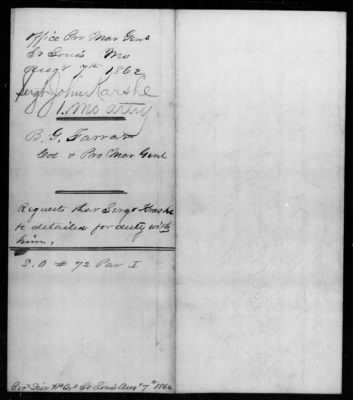 Office Pro Mar Genl
St Louis Mo
Augt 7th 1862
Sergt John Karshe
1. Mo arty
B. G. Farrar
Col & Pro Mar Genl
Requests that Sergt Karshe
be detailed for duty with
him.
S.O # 72 Par I
Recd Hd Qrs St Louis Augt 7th 1862